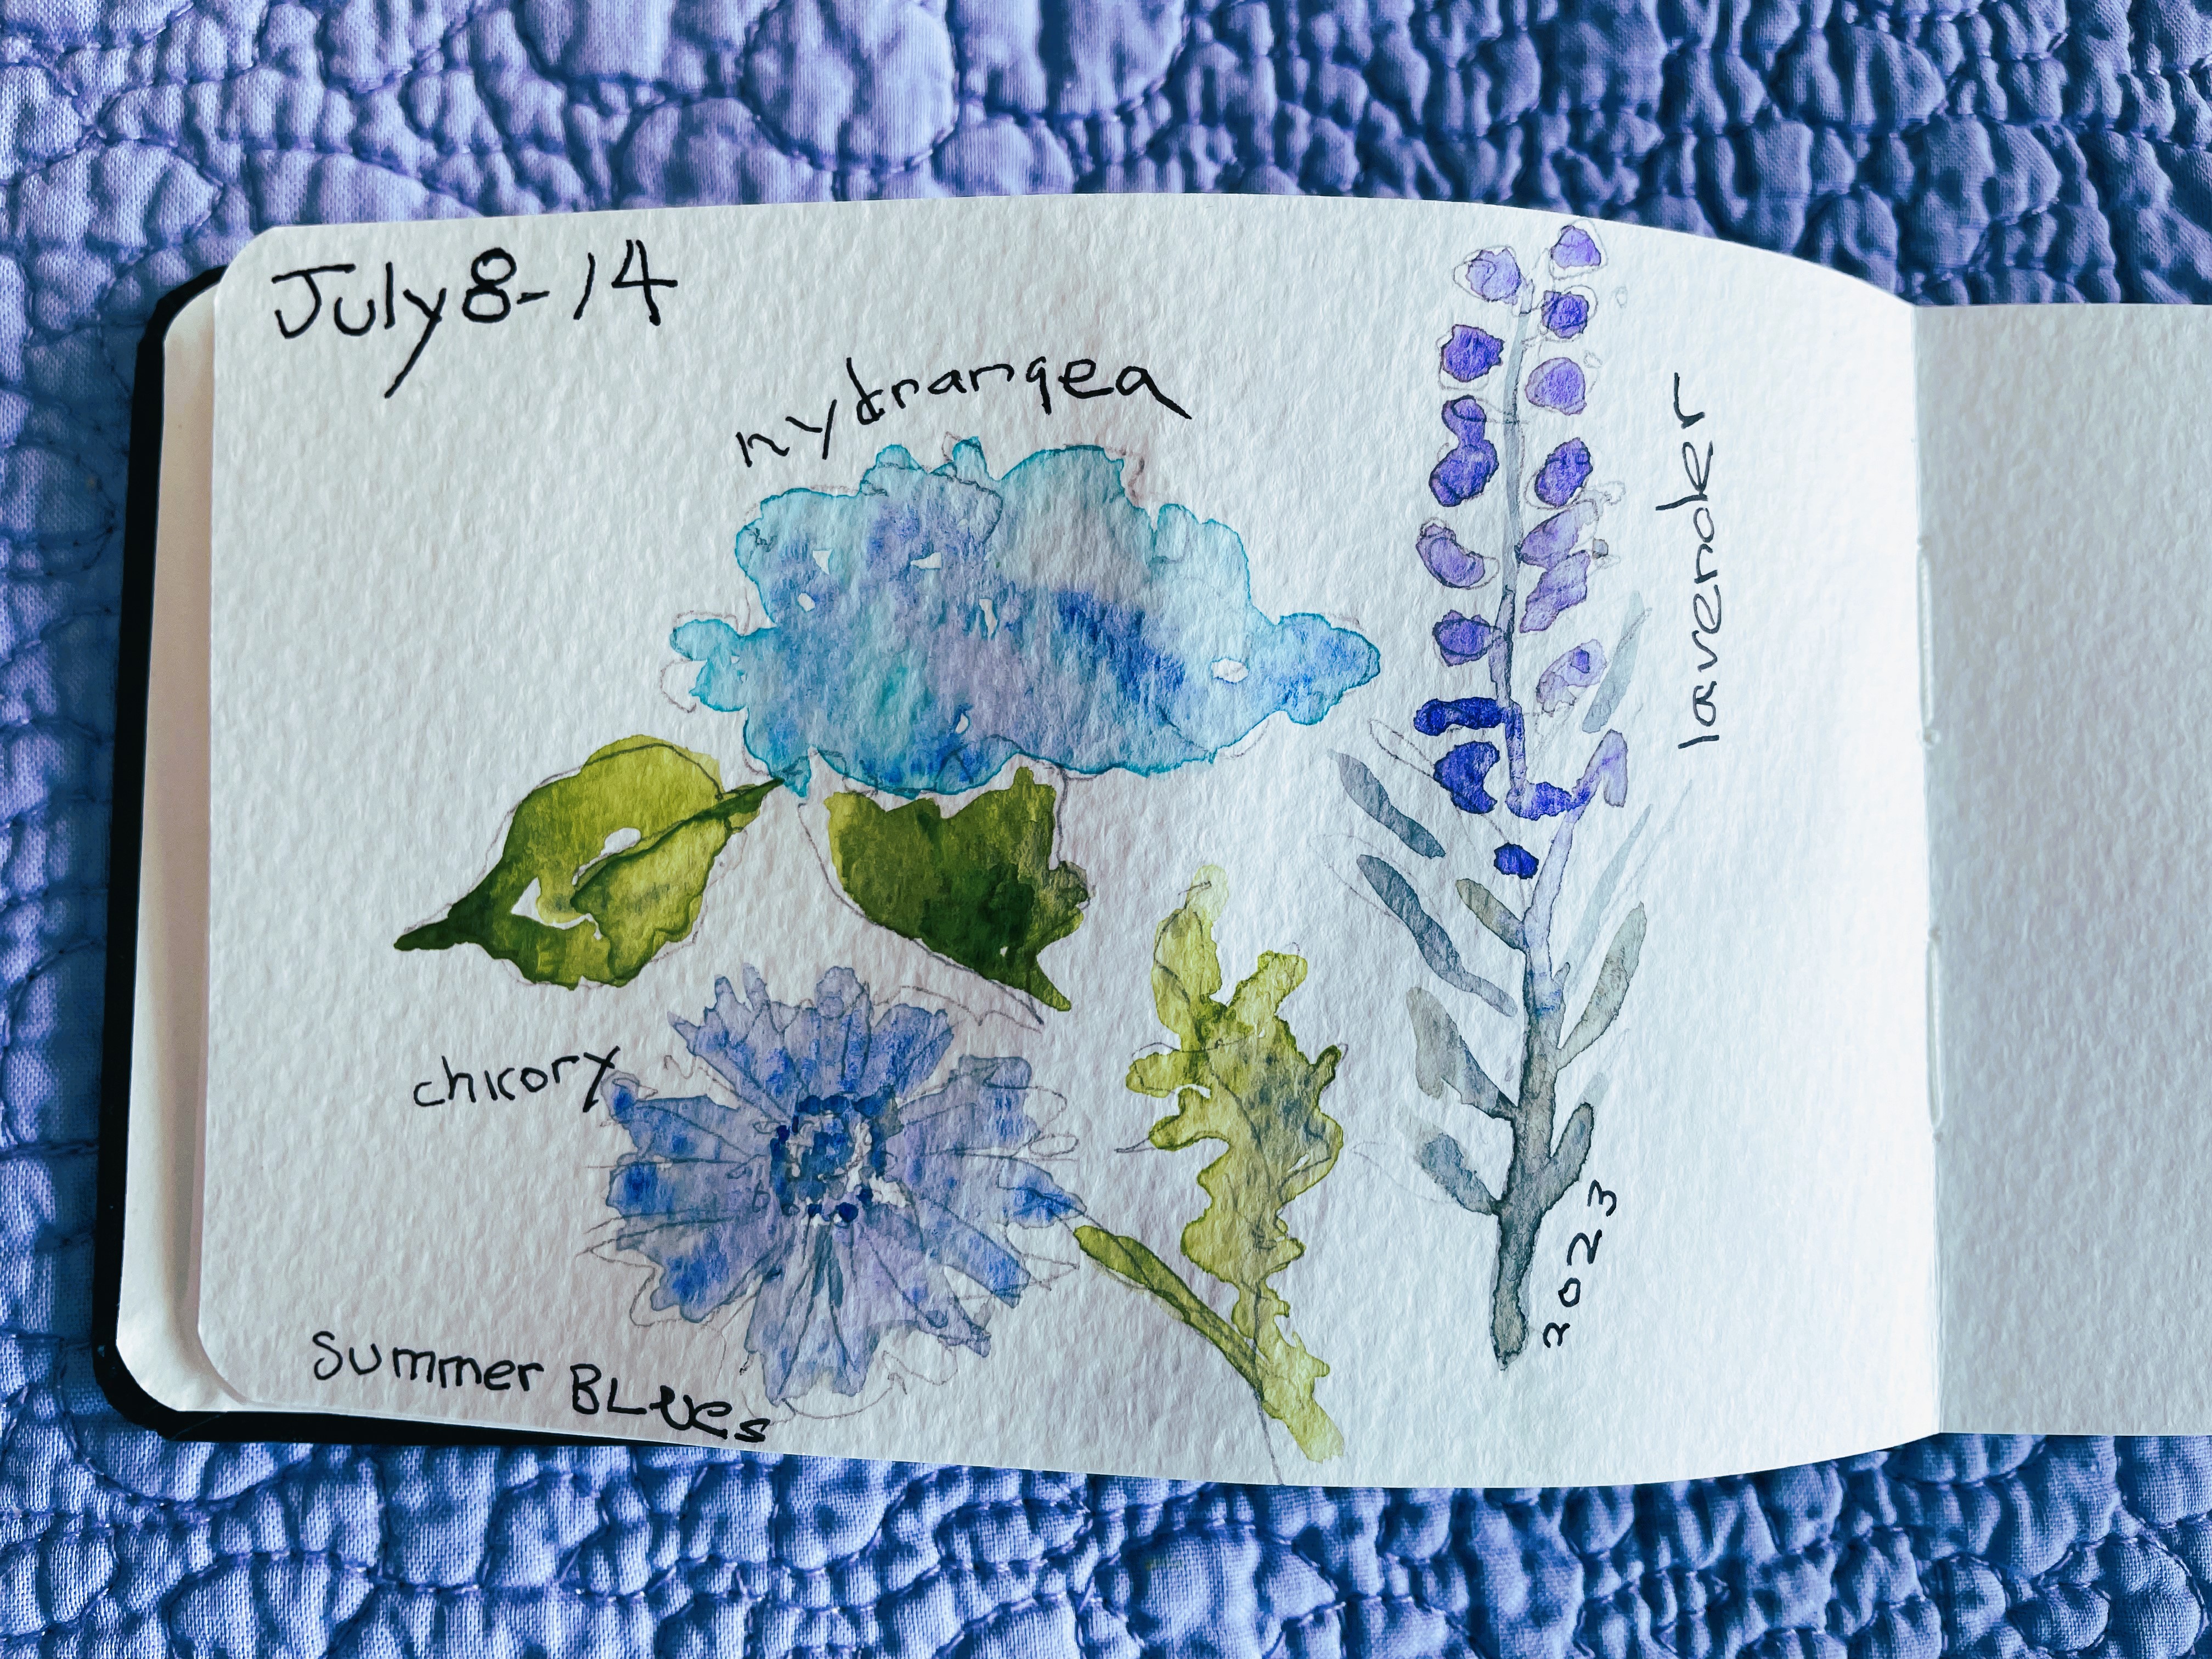 July 8-14
hydrangea
lavender
chicory
2023
Summer Blues